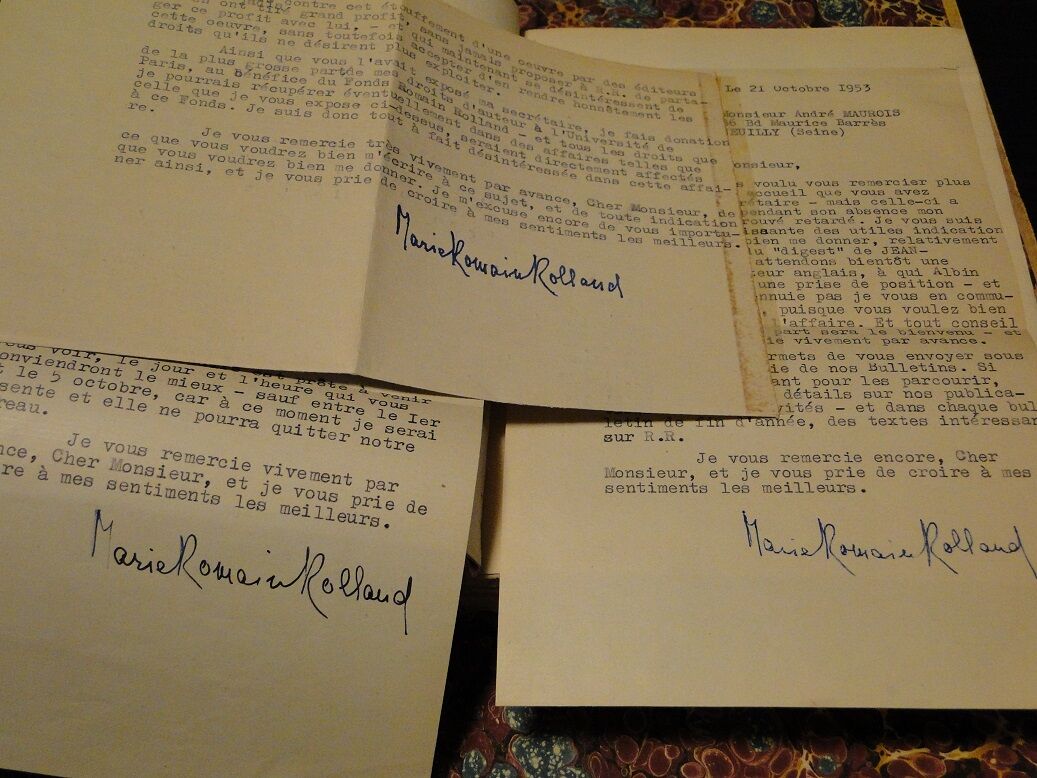 contre cet ét
ouffement d'une oeuvre par des éditeurs
ont tiré grand profit, sans jamais proposer à R.R. de parta-
ger ce profit avec lui, - et qui maintenant se désintéressent de
cette oeuvre, sans toutefois accepter d'en rendre honnêtement les
droits qu'ils ne désirent plus exploiter.
Ainsi que vous l'avait exposé ma secrétaire, je fais donation
de la plus grosse partde mes droits d'auteur à l'Université de
Paris, au bénéfice du Fonds Romain Rolland - et tous les droits que
je pourrais récupérer éventuellement dans des affaires telles que
celle que je vous expose ci-dessus, seraient directement affectés
à ce Fonds. Je suis donc tout à fait désintéressée dans cette affai-
re.
Je vous remercie très vivement par avance, Cher Monsieur, de
ce que vous voudrez bien m'écrire à ce sujet, et de toute indication
que vous voudrez bien me donner. Je m'excuse encore de vous importu-
ner ainsi, et je vous prie de croire à mes sentiments les meilleurs.
Marie Romain Rolland
Le 21 Octobre 1953
Monsieur André MAUROIS
Bd Maurice Barrès
NEUILLY (Seine)
onsieur,
voulu vous remercier plus
accueil que vous avez
rétaire - mais celle-ci a
pendant son absence mon
rouvé retardé. Je vous suis
issante des utiles indication
bien me donner, relativement
u "digest" de JEAN-
attendons bientôt une
teur anglais, à qui Albin
une prise de position - et
nnuie pas je vous en commu-
puisque vous voulez bien
l'affaire. Et tout conseil
part sera le bienvenu - et
ie vivement par avance.
rmets de vous envoyer sous
ie de nos Bulletins. Si
ant pour les parcourir,
détails sur nos publica-
vités - et dans chaque bul
letin de fin d'année, des textes intéressan
sur R.R.
Je vous remercie encore, Cher
Monsieur, et je vous prie de croire à mes
sentiments les meilleurs.
Marie Romain Rolland
ous voir, le jour et l'heure qui vous
onviendront le mieux - sauf entre le Ier
t le 5 octobre, car à ce moment je serai
sente et elle ne pourra quitter notre
reau.
Je vous remercie vivement par
nce, Cher Monsieur, et je vous prie de
re à mes sentiments les meilleurs.
Marie Romain Rolland